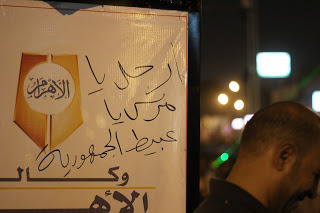 الأهرام
ارحل يا
مرسي يا
عبيط الجمهورية
وكالـ
الأهـ